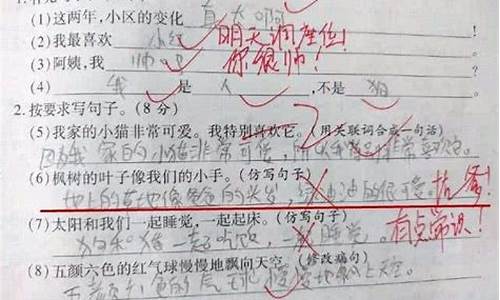 (1)这两年,小区的变化真大啊
(2)我最喜欢小红 明天调座位!
(3)阿姨,我帅吧 你很帅!
(4)我是人,不是狗
2.按要求写句子。(8分)
(5)我家的小猫非常可爱。我特别喜欢它。(用关联词合成一句话)
因为我家的小猫非常可爱,所以我
(6)枫树的叶子像我们的小手。(仿写句子)
地上的草地像爸爸的头发,绿油油的很可爱。
(7)太阳和我们一起睡觉,一起起床。(仿写句子)
狗和猪一起吃饭,一起睡觉。 有点常识!
(8)五颜六色的红气球慢慢地飘向天空。(修改病句)
五颜六色的气球慢慢地飘上天空。